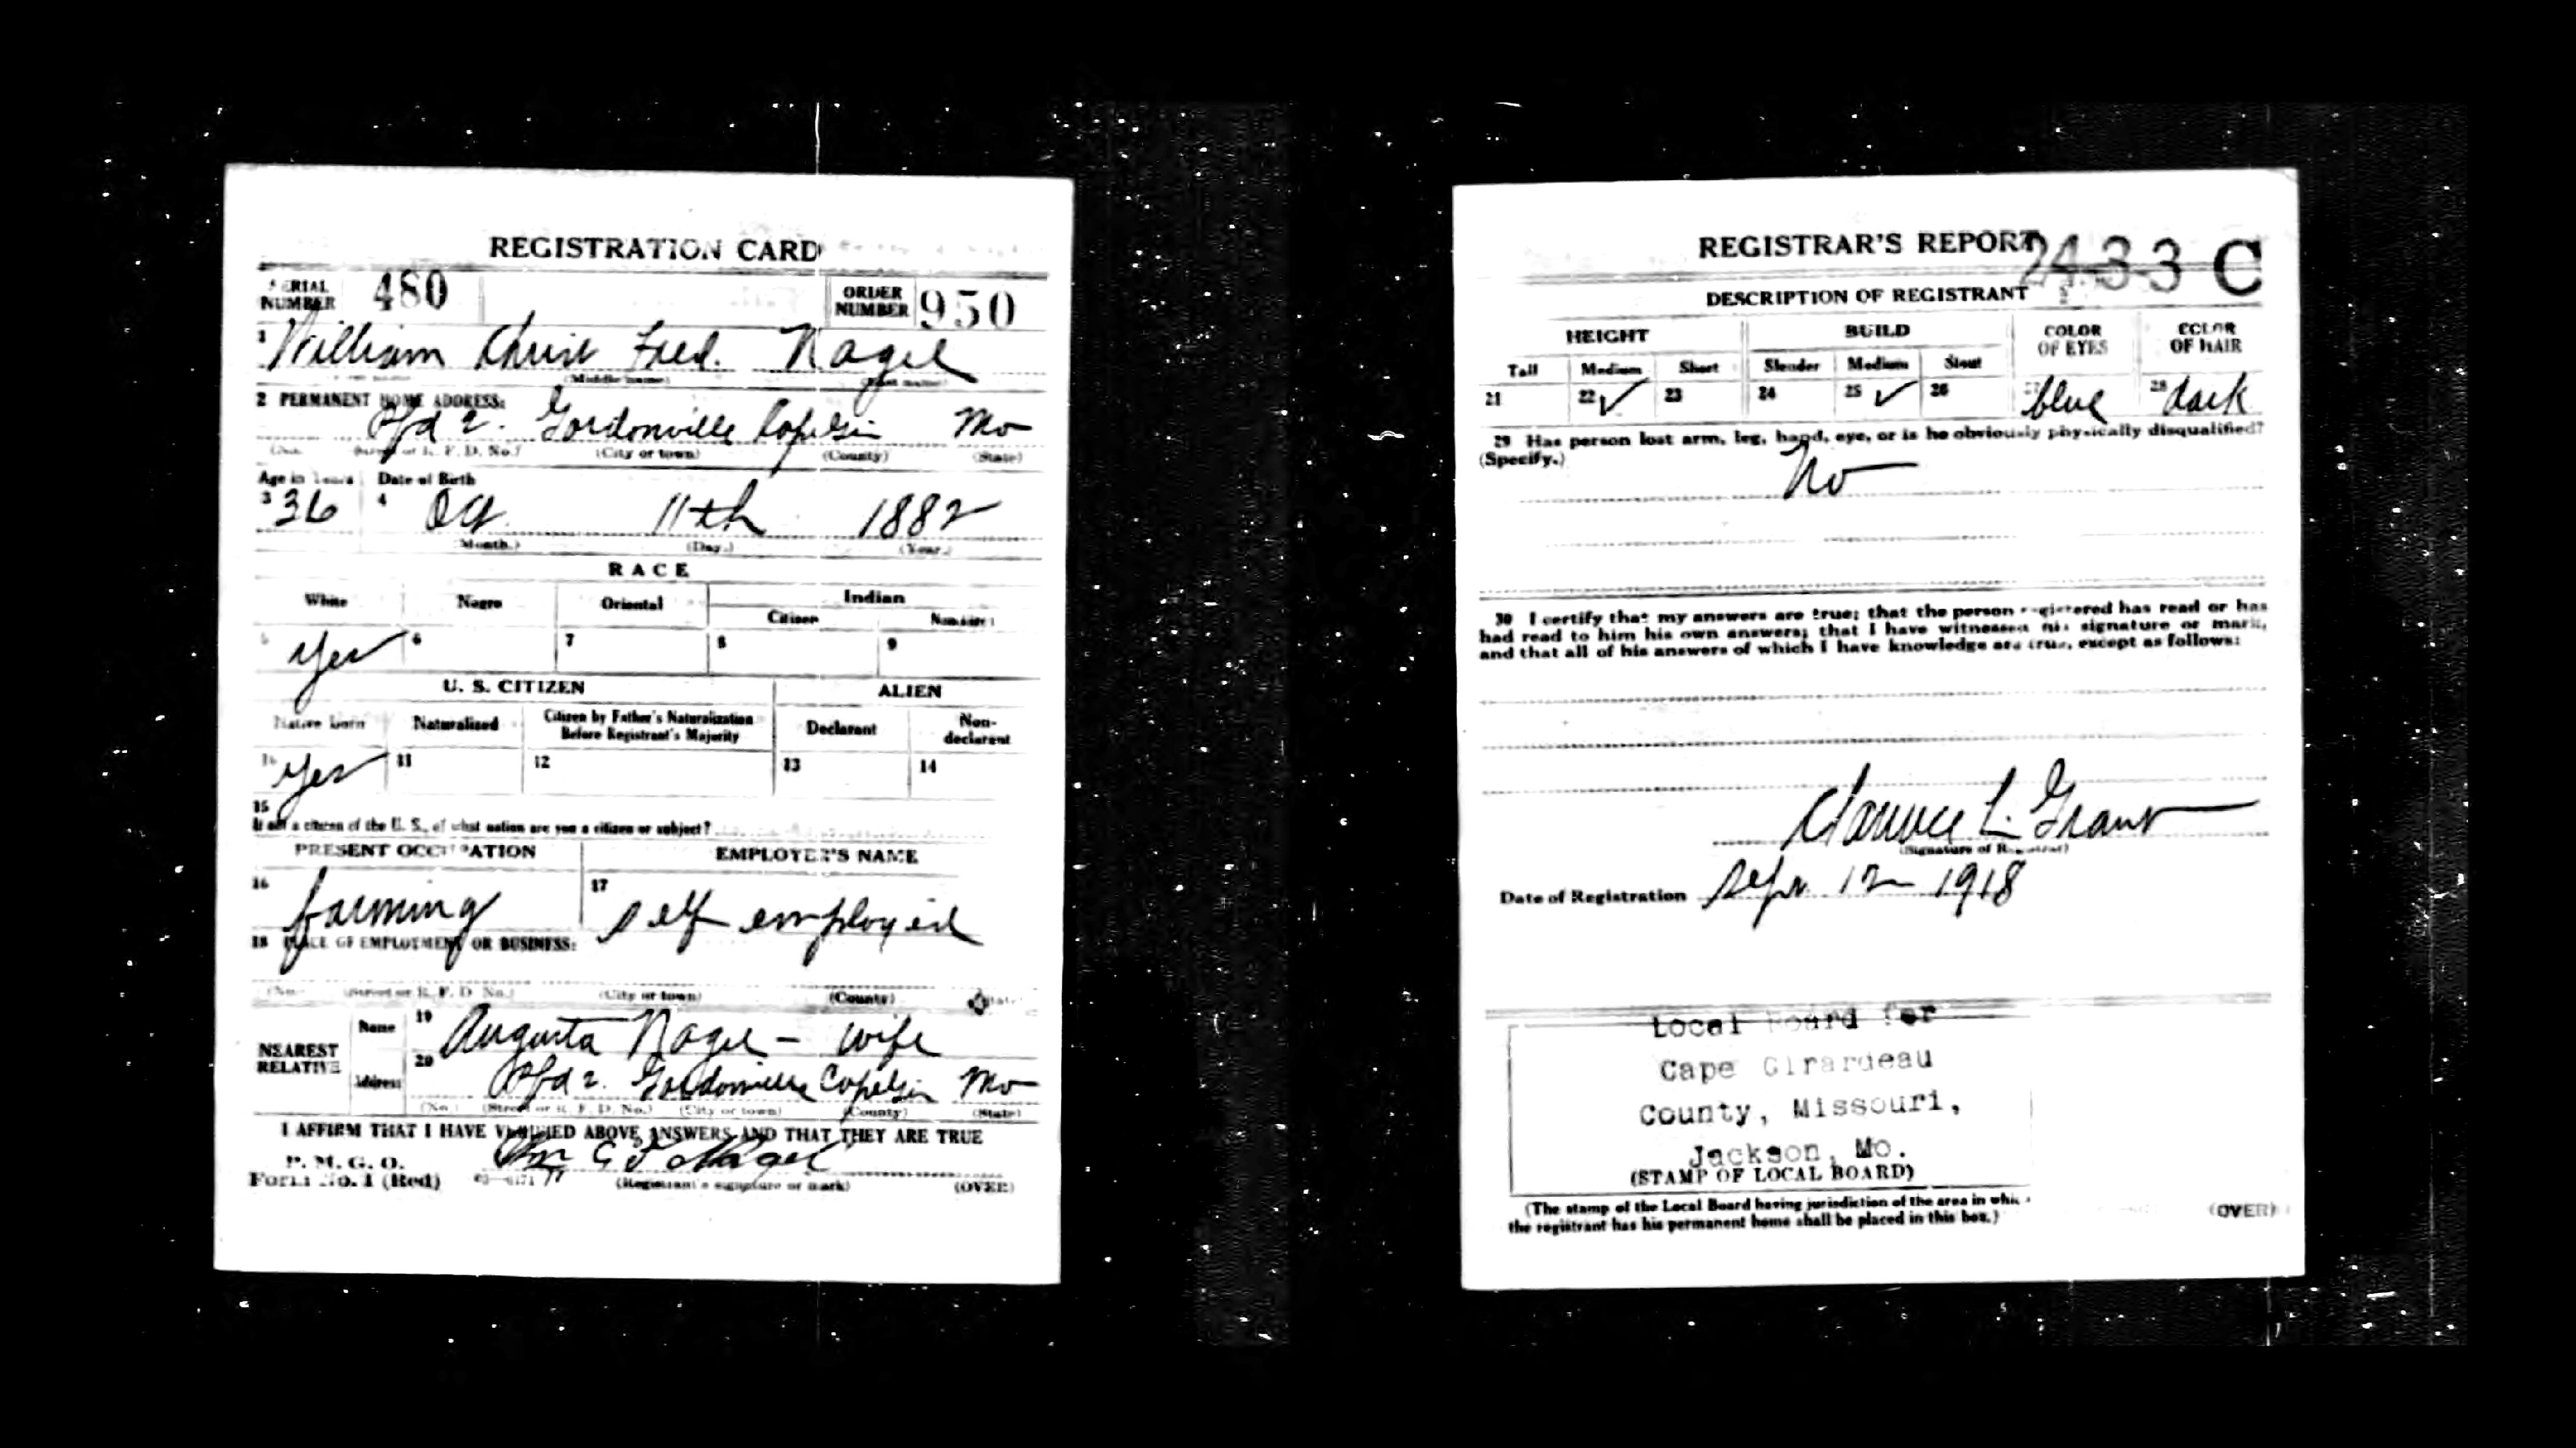 REGISTRATION CARD
SERIAL NUMBER 480 ORDER NUMBER 950
1 William Christ Fred. Nagel
(Middle name) (Last name)
2 PERMANENT HOME ADDRESS:
Rfd 2. Gordonville Mo
(Street or R. F. D. No.) (City or town) (County) (State)
Age in Years Date of Birth
3 36 4 11th 1882
(Month.) (Day.) (Year.)
RACE
White Negro Oriental Indian
Citizen
5 Yes 6 7 8 9
U. S. CITIZEN ALIEN
Native Born Naturalized Citizen by Father's Naturalization Before Registrant's Majority Declarant Non-declarant
10 Yes 11 12 13 14
15
If not a citizen of the U. S., of what nation are you a citizen or subject?
PRESENT OCCUPATION EMPLOYER'S NAME
16 farming 17 self employed
18 PLACE OF EMPLOYMENT OR BUSINESS:
(No.) (Street or R. F. D. No.) (City or town) (County) (State)
NEAREST RELATIVE Name 19 Augusta Nagel - wife
Address 20 Rfd 2. Gordonville Mo
(No.) (Street or R. F. D. No.) (City or town) (County) (State)
I AFFIRM THAT I HAVE VERIFIED ABOVE ANSWERS AND THAT THEY ARE TRUE
P. M. G. O.
Form No. 1 (Red) Wm C F Nagel
(Registrant's signature or mark) (OVER)
REGISTRAR'S REPORT
2433 C
DESCRIPTION OF REGISTRANT
HEIGHT BUILD COLOR OF EYES COLOR OF HAIR
Tall Medium Short Slender Medium Stout
21 22 ✓ 23 24 25 ✓ 26 27 blue 28 dark
29 Has person lost arm, leg, hand, eye, or is he obviously physically disqualified?
(Specify.)
No
30 I certify that my answers are true; that the person registered has read or has
had read to him his own answers; that I have witnessed his signature or mark,
and that all of his answers of which I have knowledge are true, except as follows:
Clarence L. Grant
(Signature of Registrar)
Date of Registration Sept. 12 1918
Local Board for
Cape Girardeau
County, Missouri,
Jackson, Mo.
(STAMP OF LOCAL BOARD)
(The stamp of the Local Board having jurisdiction of the area in which
the registrant has his permanent home shall be placed in this box.)
(OVER)